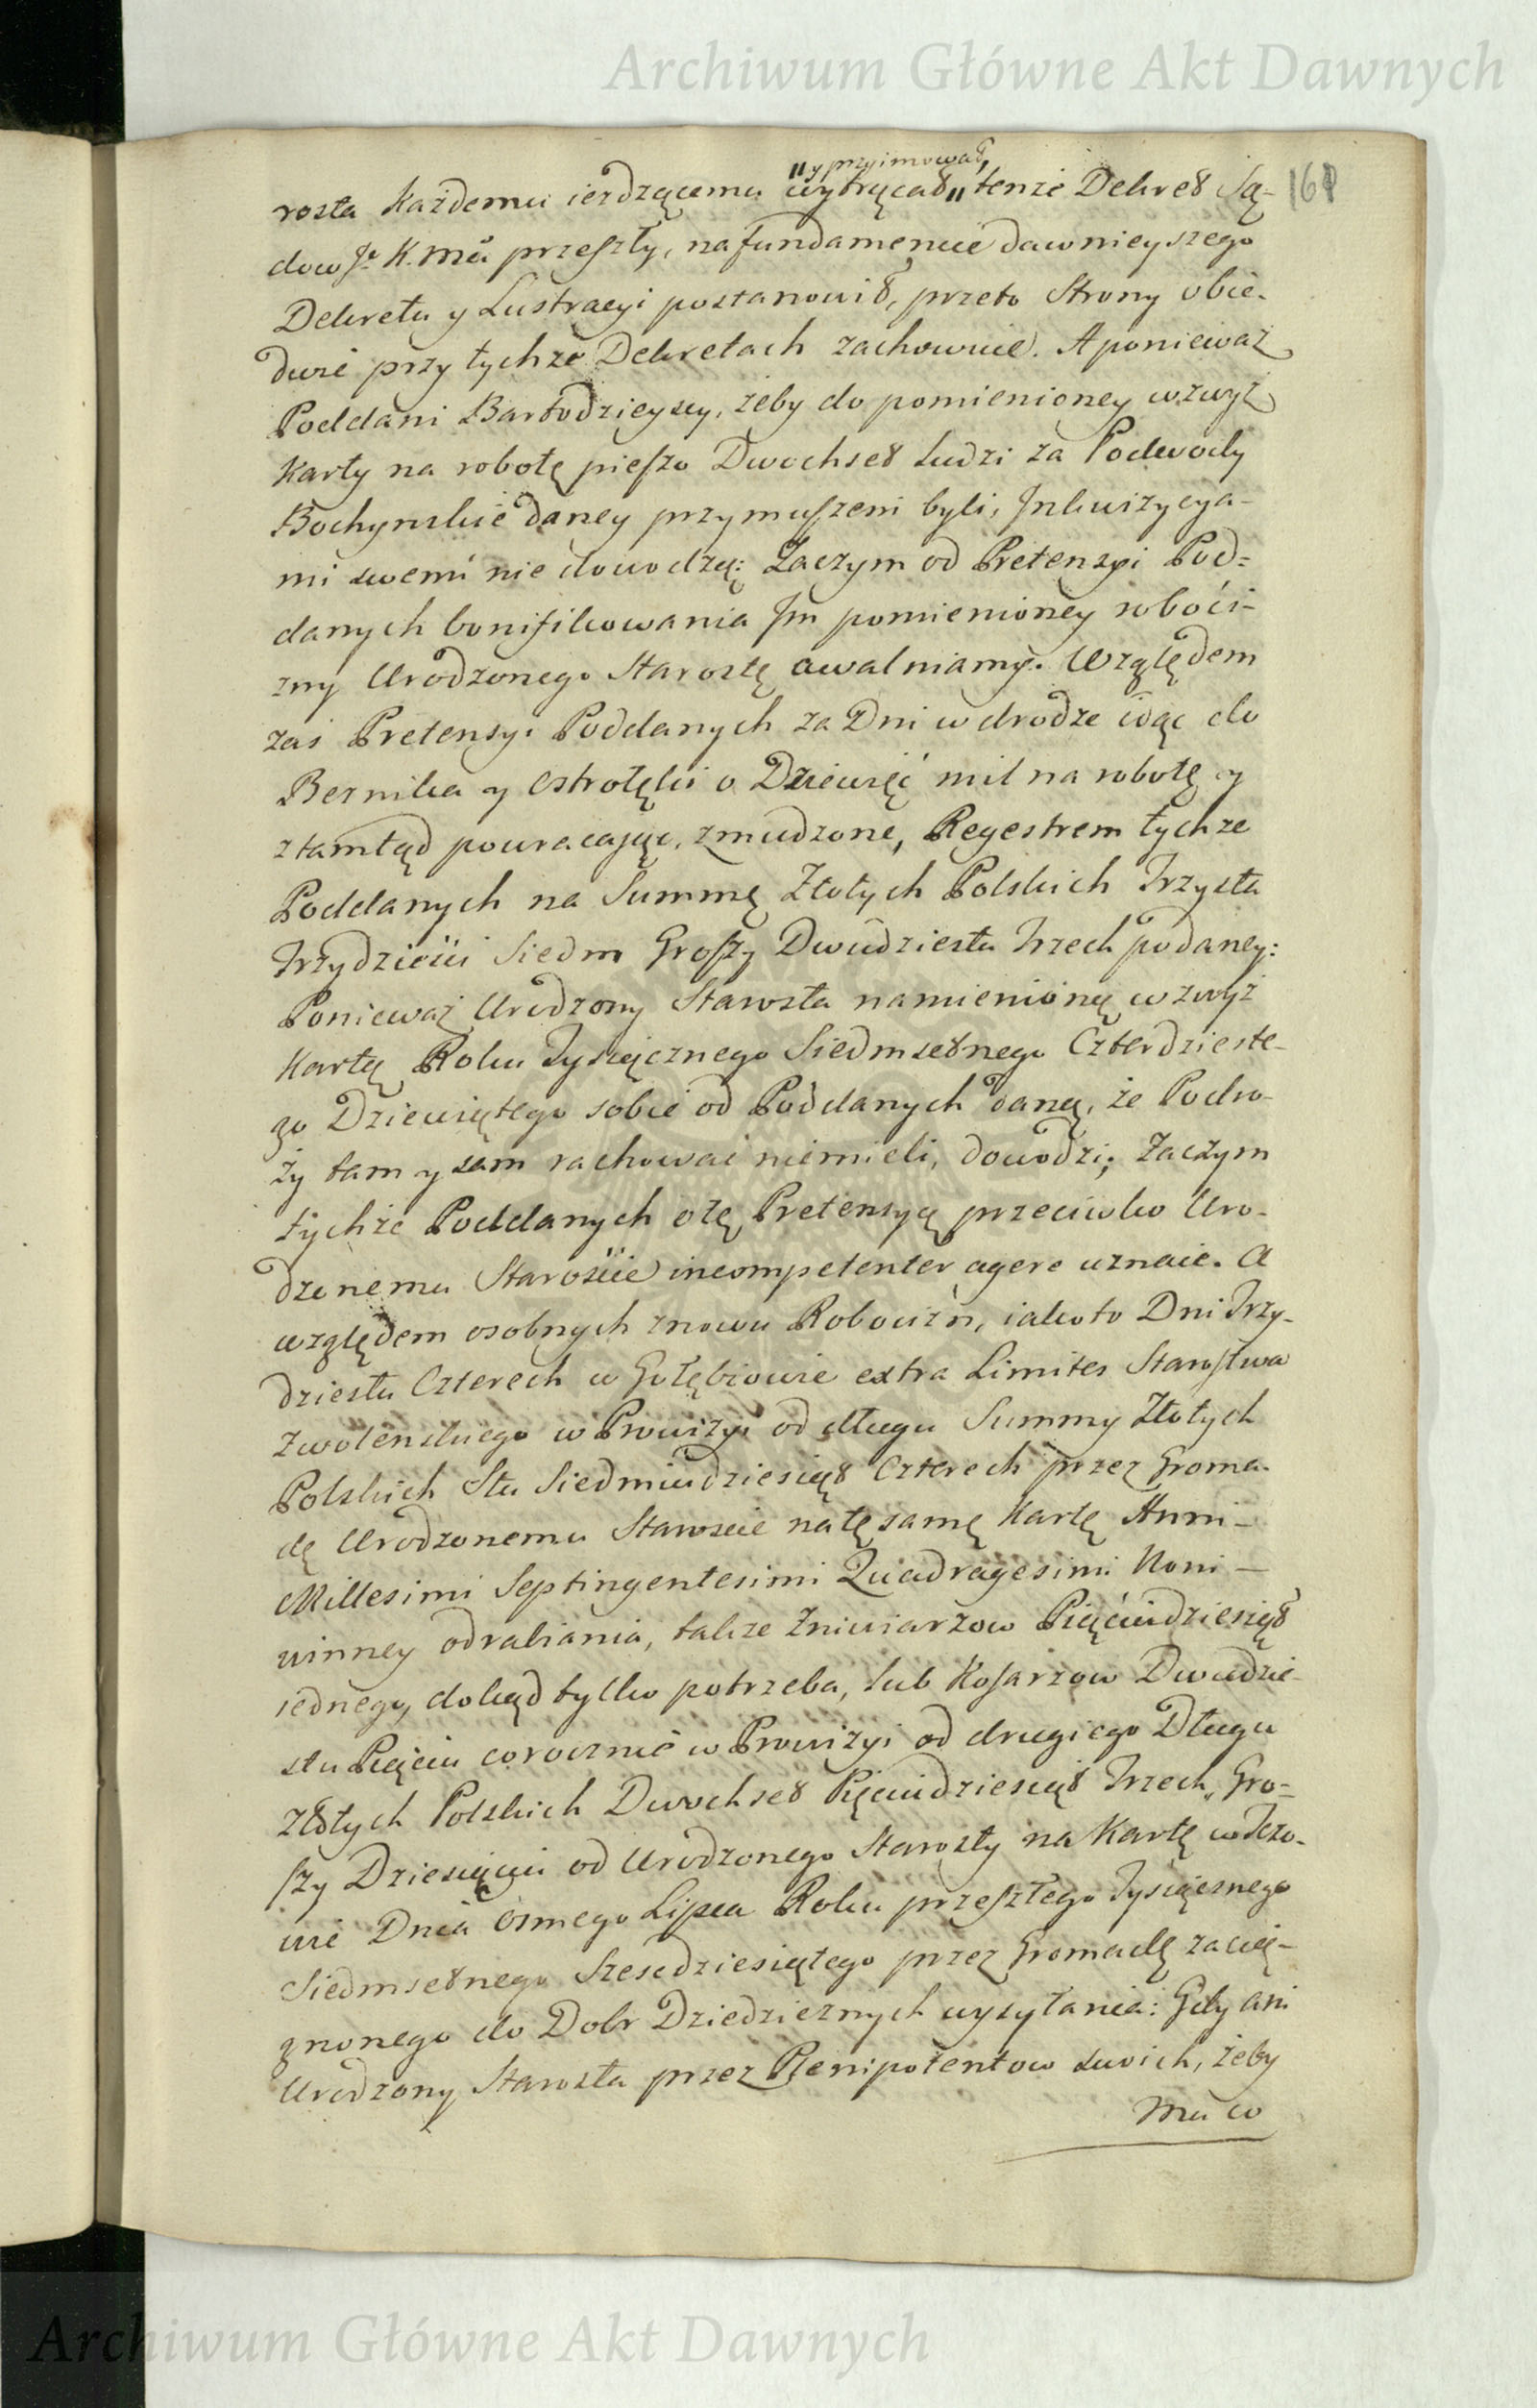 Archiwum Główne Akt Dawnych
161
"y przyimował,
rosta każdemu ieżdzącemu wytrącał" tenże Dekret Są-
dow J. K. Mci przeszły, na fundamencie dawnieyszego
Dekretu y Lustracyi postanowił, przeto Strony obie-
dwie przy tychże Dekretach zachowuie. A ponieważ
Poddani Bartodzieyscy, żeby do pomienioney wzwyż
Karty na robotę pieszo Dwochset ludzi za Podwody
Bochynskie daney przymuszeni byli, Inkwizycya-
mi swemi nie dowodzą: Zaczym od Pretensyi Pod-
danych bonifikowania Im pomienioney roboci-
zny Urodzonego Starostę uwalniamy. Względem
zaś Pretensyi Poddanych za Dni w drodze idąc do
Bernika y Ostrołęki o Dziewięć mil na robotę y
ztamtąd powracając, zmudzone, Regestrem tychże
Poddanych na Summę Złotych Polskich Trzysta
Trzydzieści Siedm Groszy Dwudziestu Trzech podaney:
Ponieważ Urodzony Starosta namienioną wzwyż
Kartą Roku Tysiącznego Siedmsetnego Czterdzieste-
go Dziewiątego sobie od Poddanych daną, że Podro-
ży tam y sam rachować niemieli, dowodzi; Zaczym
tychże Poddanych o tę Pretensyą przeciwko Uro-
dzonemu Staroście incompetenter agere uznaie. A
względem osobnych znowu Robocizn, iako to Dni Trzy-
dziestu Czterech w Gołębiowie extra Limites Starostwa
Zwolenskiego w Prowizyi od długu Summy Złotych
Polskich Stu Siedmiudziesiąt Czterech przez Groma-
dę Urodzonemu Staroscie na tę samę Kartę Anni-
Millesimi Septingentesimi Quadragesimi Noni -
winney odrabiania, także Zniwiarzow Pięćiudziesiąt
iednego, dokąd tylko potrzeba, lub Kosarzow Dwudzie-
stu Pięciu corocznie w Prowizyi od drugiego Długu
Złotych Polskich Dwochset Pięciudziesiąt Trzech, Gro-
szy Dziesięciu od Urodzonego Starosty na Kartę w Tczo-
wie Dnia Osmego Lipca Roku przeszłego Tysiącznego
Siedmsetnego Szescdziesiątego przez Gromadę zacią-
gnonego do Dobr Dziedzicznych wysyłania: Gdy ani
Urodzony Starosta przez Plenipotentow swoich, żeby
Mu co
Archiwum Główne Akt Dawnych